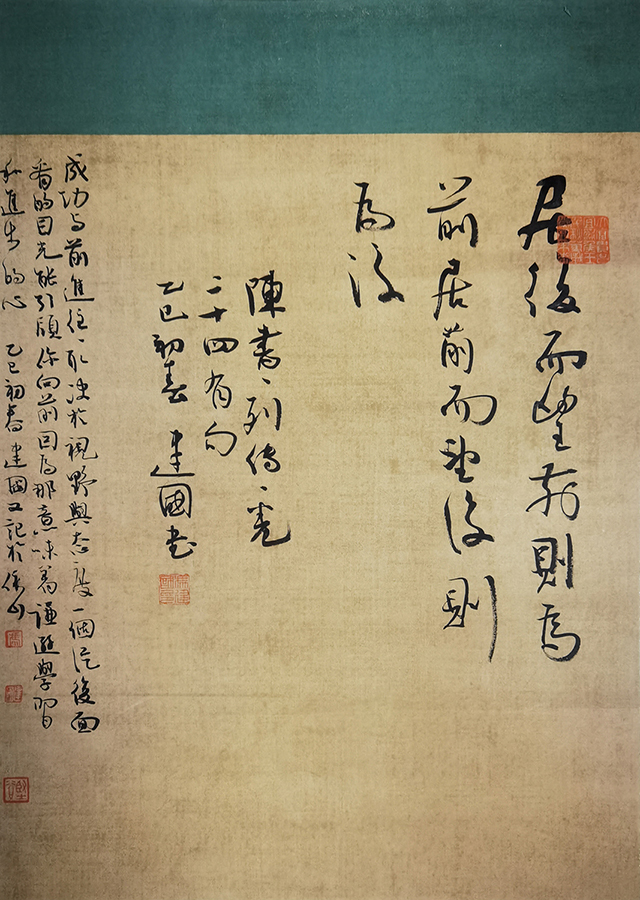 居後而望前則為
前居前而望後則
為後
陳書、列傳、卷
二十四有句
乙巳初春 建國書
成功与前進往、取决於視野與态度一個從後面
看的目光能引領你向前因為那意味着謙遜學習
和進步的心 乙巳初春建國又記於